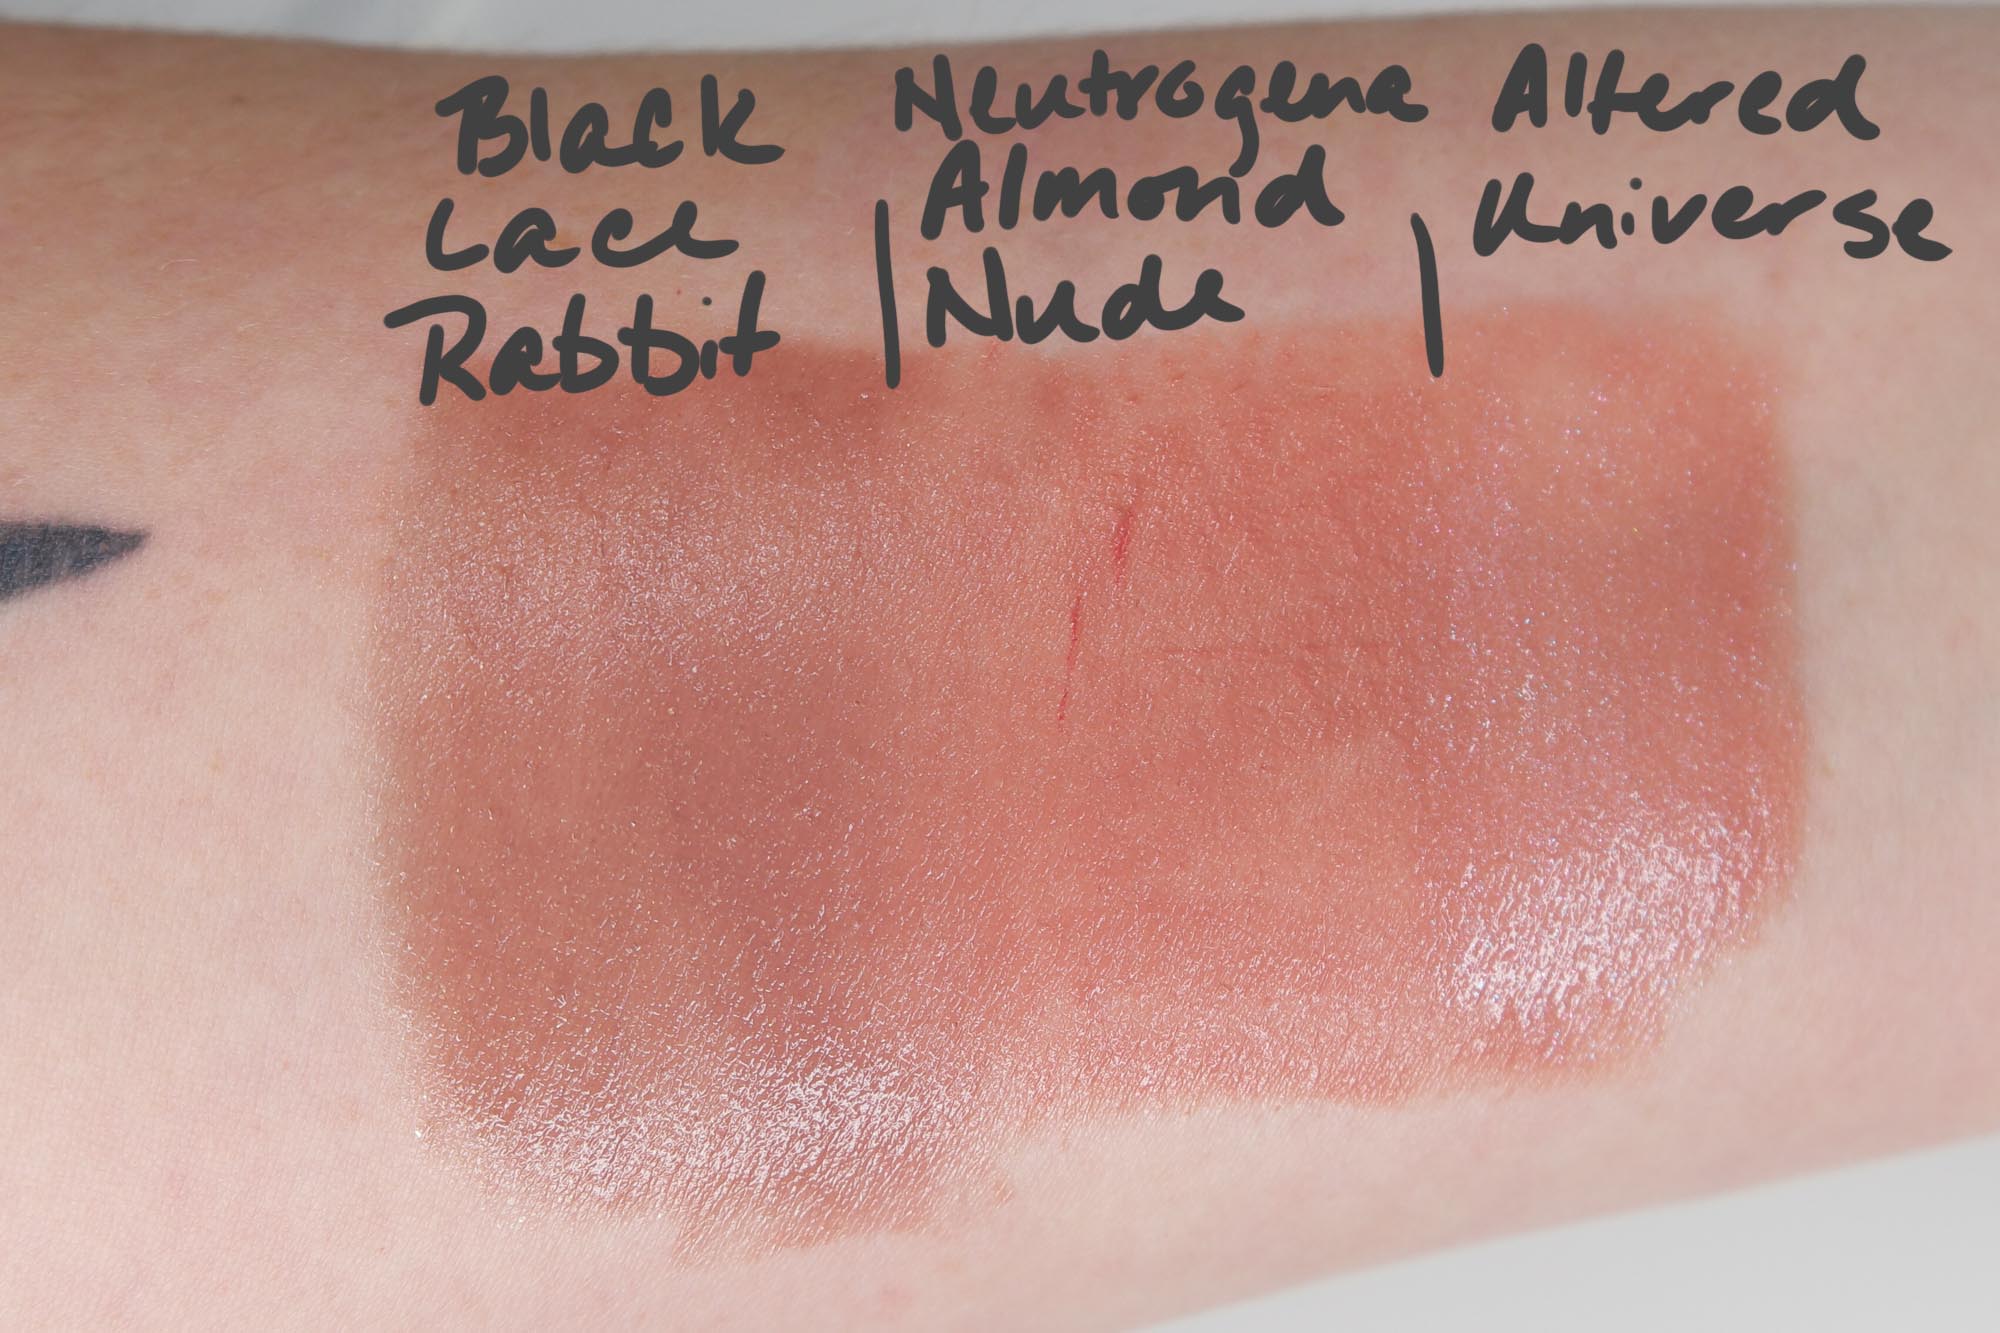 Black
Lace
Rabbit
Neutrogena
Almond
Nude
Altered
Universe